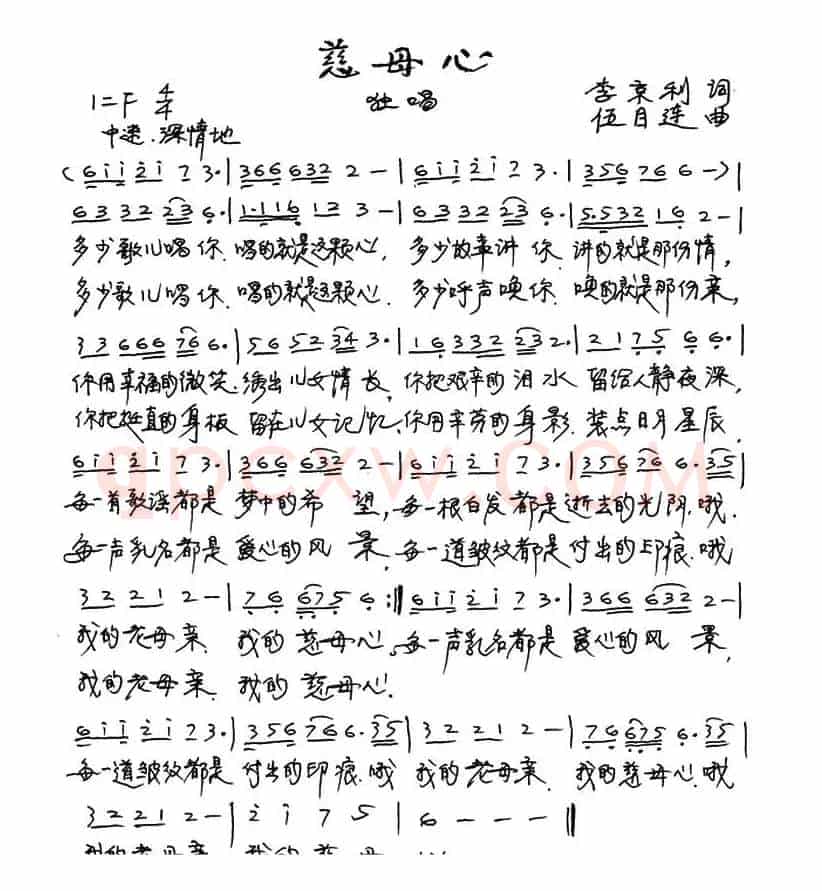 慈母心
独唱
1=F 4/4
李京利 词
中速.深情地
伍日连 曲
(6 i i 2 i 7 3.|3 6 6 6 3 2 2 -|6 i i 2 i 7 3.|3 5 6 7 6 6 -)|
6 3 3 2 2 3 6.|1·1 1 6 1 2 3 -|6 3 3 2 2 3 6.|5·5 3 2 1 6 2 -|
多少歌儿唱你.唱的就是这颗心,多少故事讲你.讲的就是那份情,
多少歌儿唱你.唱的就是这颗心.多少呼声唤你.唤的就是那份亲,
3 3 6 6 6 7 6 6.|5 6 5 2 3 4 3.|1 6 3 3 2 2 3 2.|2 1 7 5 6 6.|
你用幸福的微笑.绣出儿女情长,你把艰辛的泪水留给人静夜深,
你把挺直的身板留在儿女记忆,你用辛劳的身影.装点日月星辰.
6 i i 2 i 7 3.|3 6 6 6 3 2 2 -|6 i i 2 i 7 3.|3 5 6 7 6 6.3 5|
每一首歌谣都是梦中的希望,每一根白发都是逝去的光阴.哦.
每一声乳名都是爱心的风景,每一道皱纹都是付出的印痕.哦
3 2 2 1 2 -|7 6 6 7 5 6:‖6 i i 2 i 7 3.|3 6 6 6 3 2 2 -|
我的老母亲.我的慈母心。每一声乳名都是爱心的风景,
我的老母亲.我的慈母心.
6 i i 2 i 7 3.|3 5 6 7 6 6.3 5|3 2 2 1 2 -|7 6 6 7 5 6.3 5|
每一道皱纹都是付出的印痕.哦我的老母亲.我的慈母心.哦
3 2 2 1 2 -|2 i 7 5|6 - - -‖
我的老母亲.我的慈母
qpcxw.com